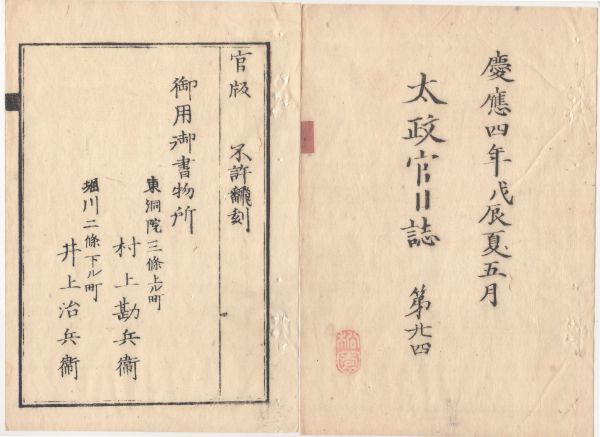 慶應四年戊辰夏五月
太政官日誌 第廿四
官版 不許翻刻
御用御書物所
東洞院三條上ル町
村上勘兵衛
堀川二條下ル町
井上治兵衛